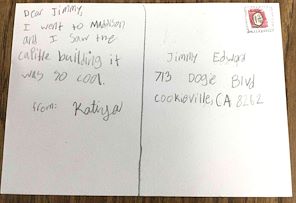 Dear Jimmy,
I went to Madison
and I saw the
capitle building it
was so cool.
from: Katirya
Jimmy Edward
713 Dogie Blvd
Cookieville, CA 8262